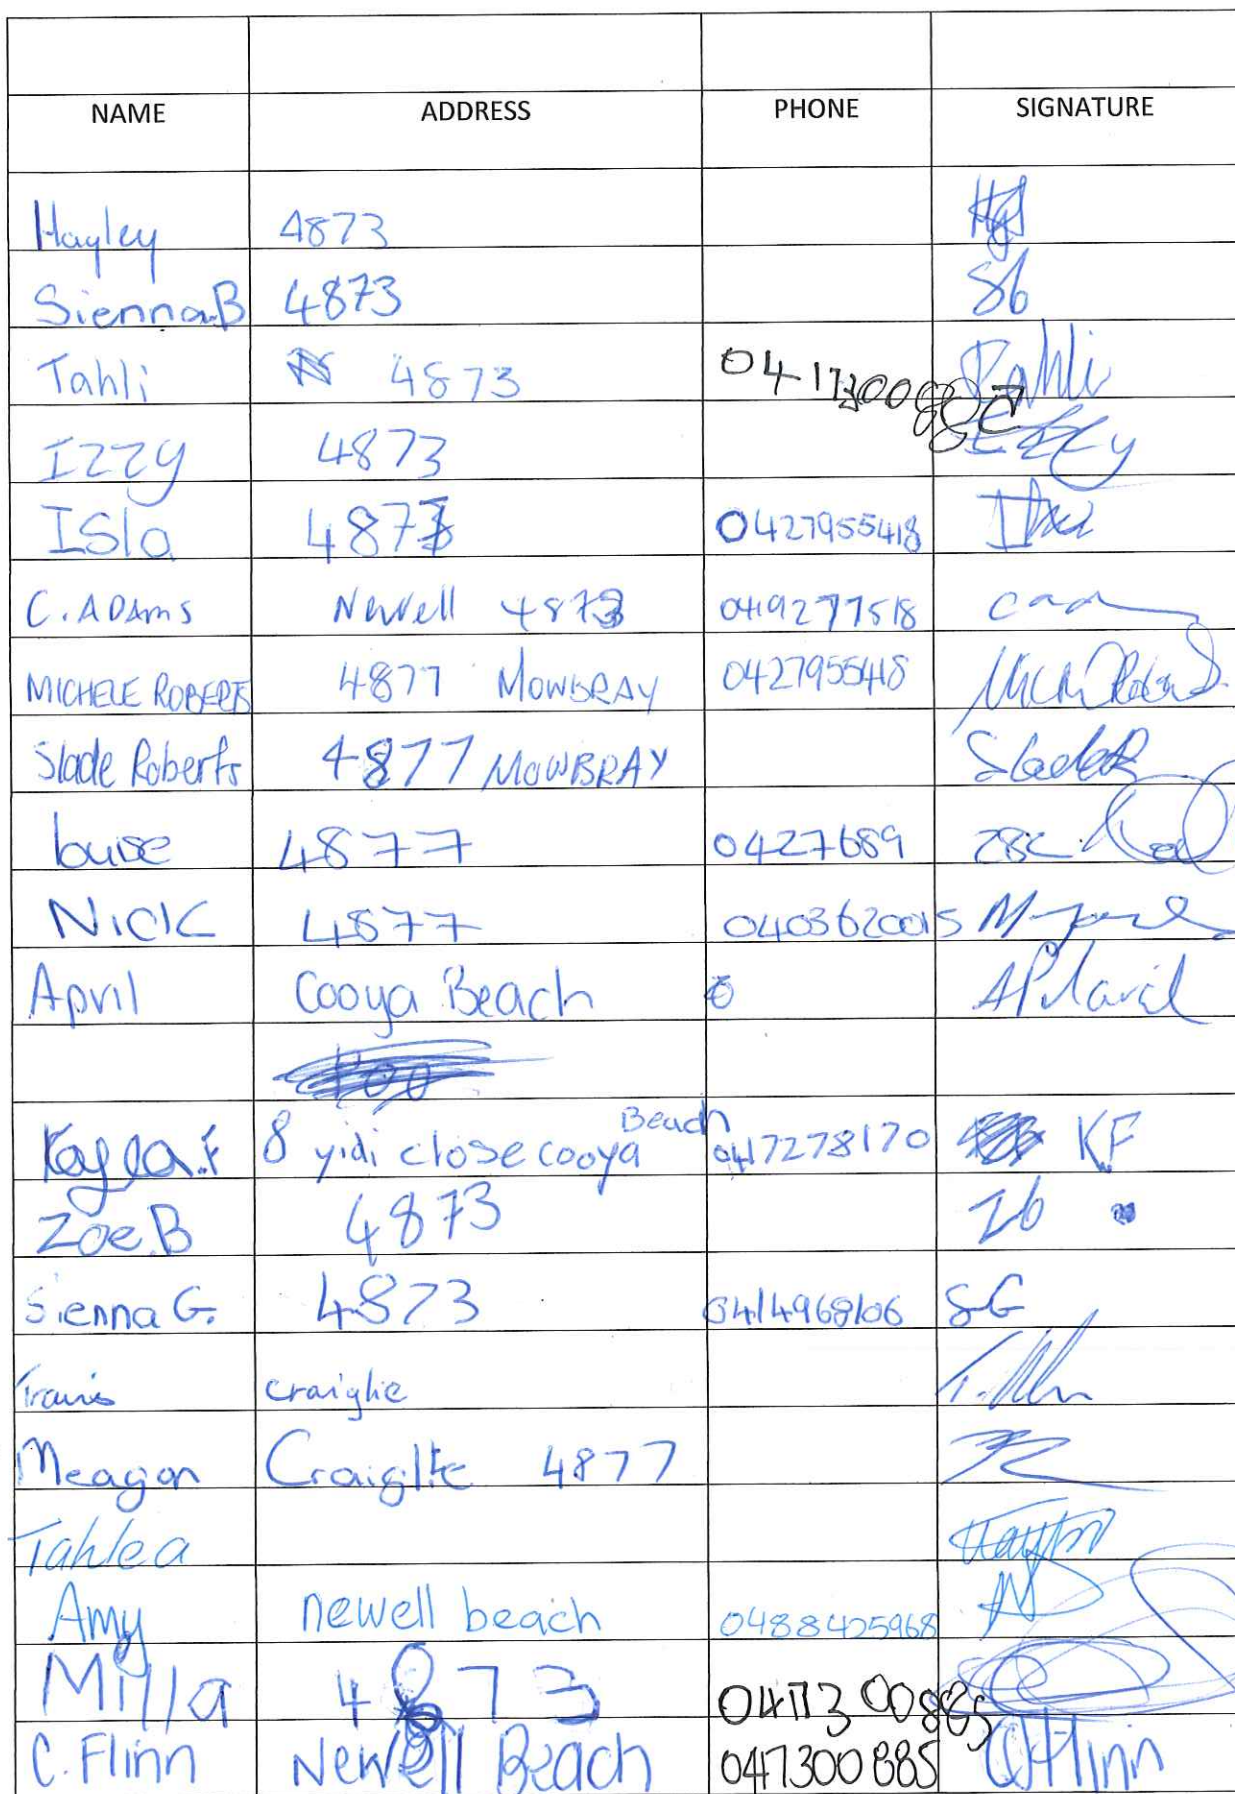 NAME ADDRESS PHONE SIGNATURE
Hayley 4873
Sienna.B 4873 Sb
Tahli 4873 Tahli
Izzy 4873 Izzy
Isla 4873 0427955418 Isla
C. ADAMS Newell 4873 0419277518
MICHELE ROBERTS 4877 MOWBRAY 0427955418
Slade Roberts 4877 MOWBRAY
Louise 4877 0427689 282
NICK 4877 0403620015
April Cooya Beach
Kayla.F 8 yidi close cooya Beach 0417278170 KF
Zoe.B 4873 Zb
Sienna G. 4873 0414968106 SG
Travis craiglie
Meagan Craiglie 4877
Tahlea
Amy newell beach 0488425968
Milla 4873 0417300885
C. Flinn Newell Beach 0417300885 CFlinn